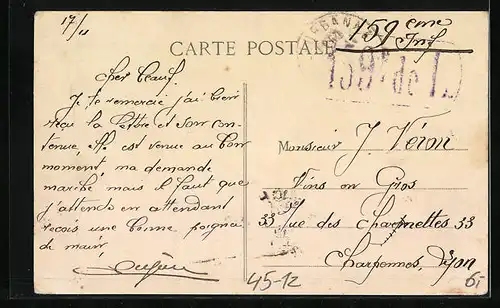 17/11
159 eme
Inf
CARTE POSTALE
159 de L
Cher Beauf.
Je te remercie j'ai bien
reçu la lettre et son con-
tenue, est venue au bon
moment, ma demande
marche mais il faut que
j'attends en attendant
reçois une bonne poignée
de main
Monsieur J. Véron
Vins en Gros
33 rue des Charmettes 33
Charpennes, Lyon
45-12